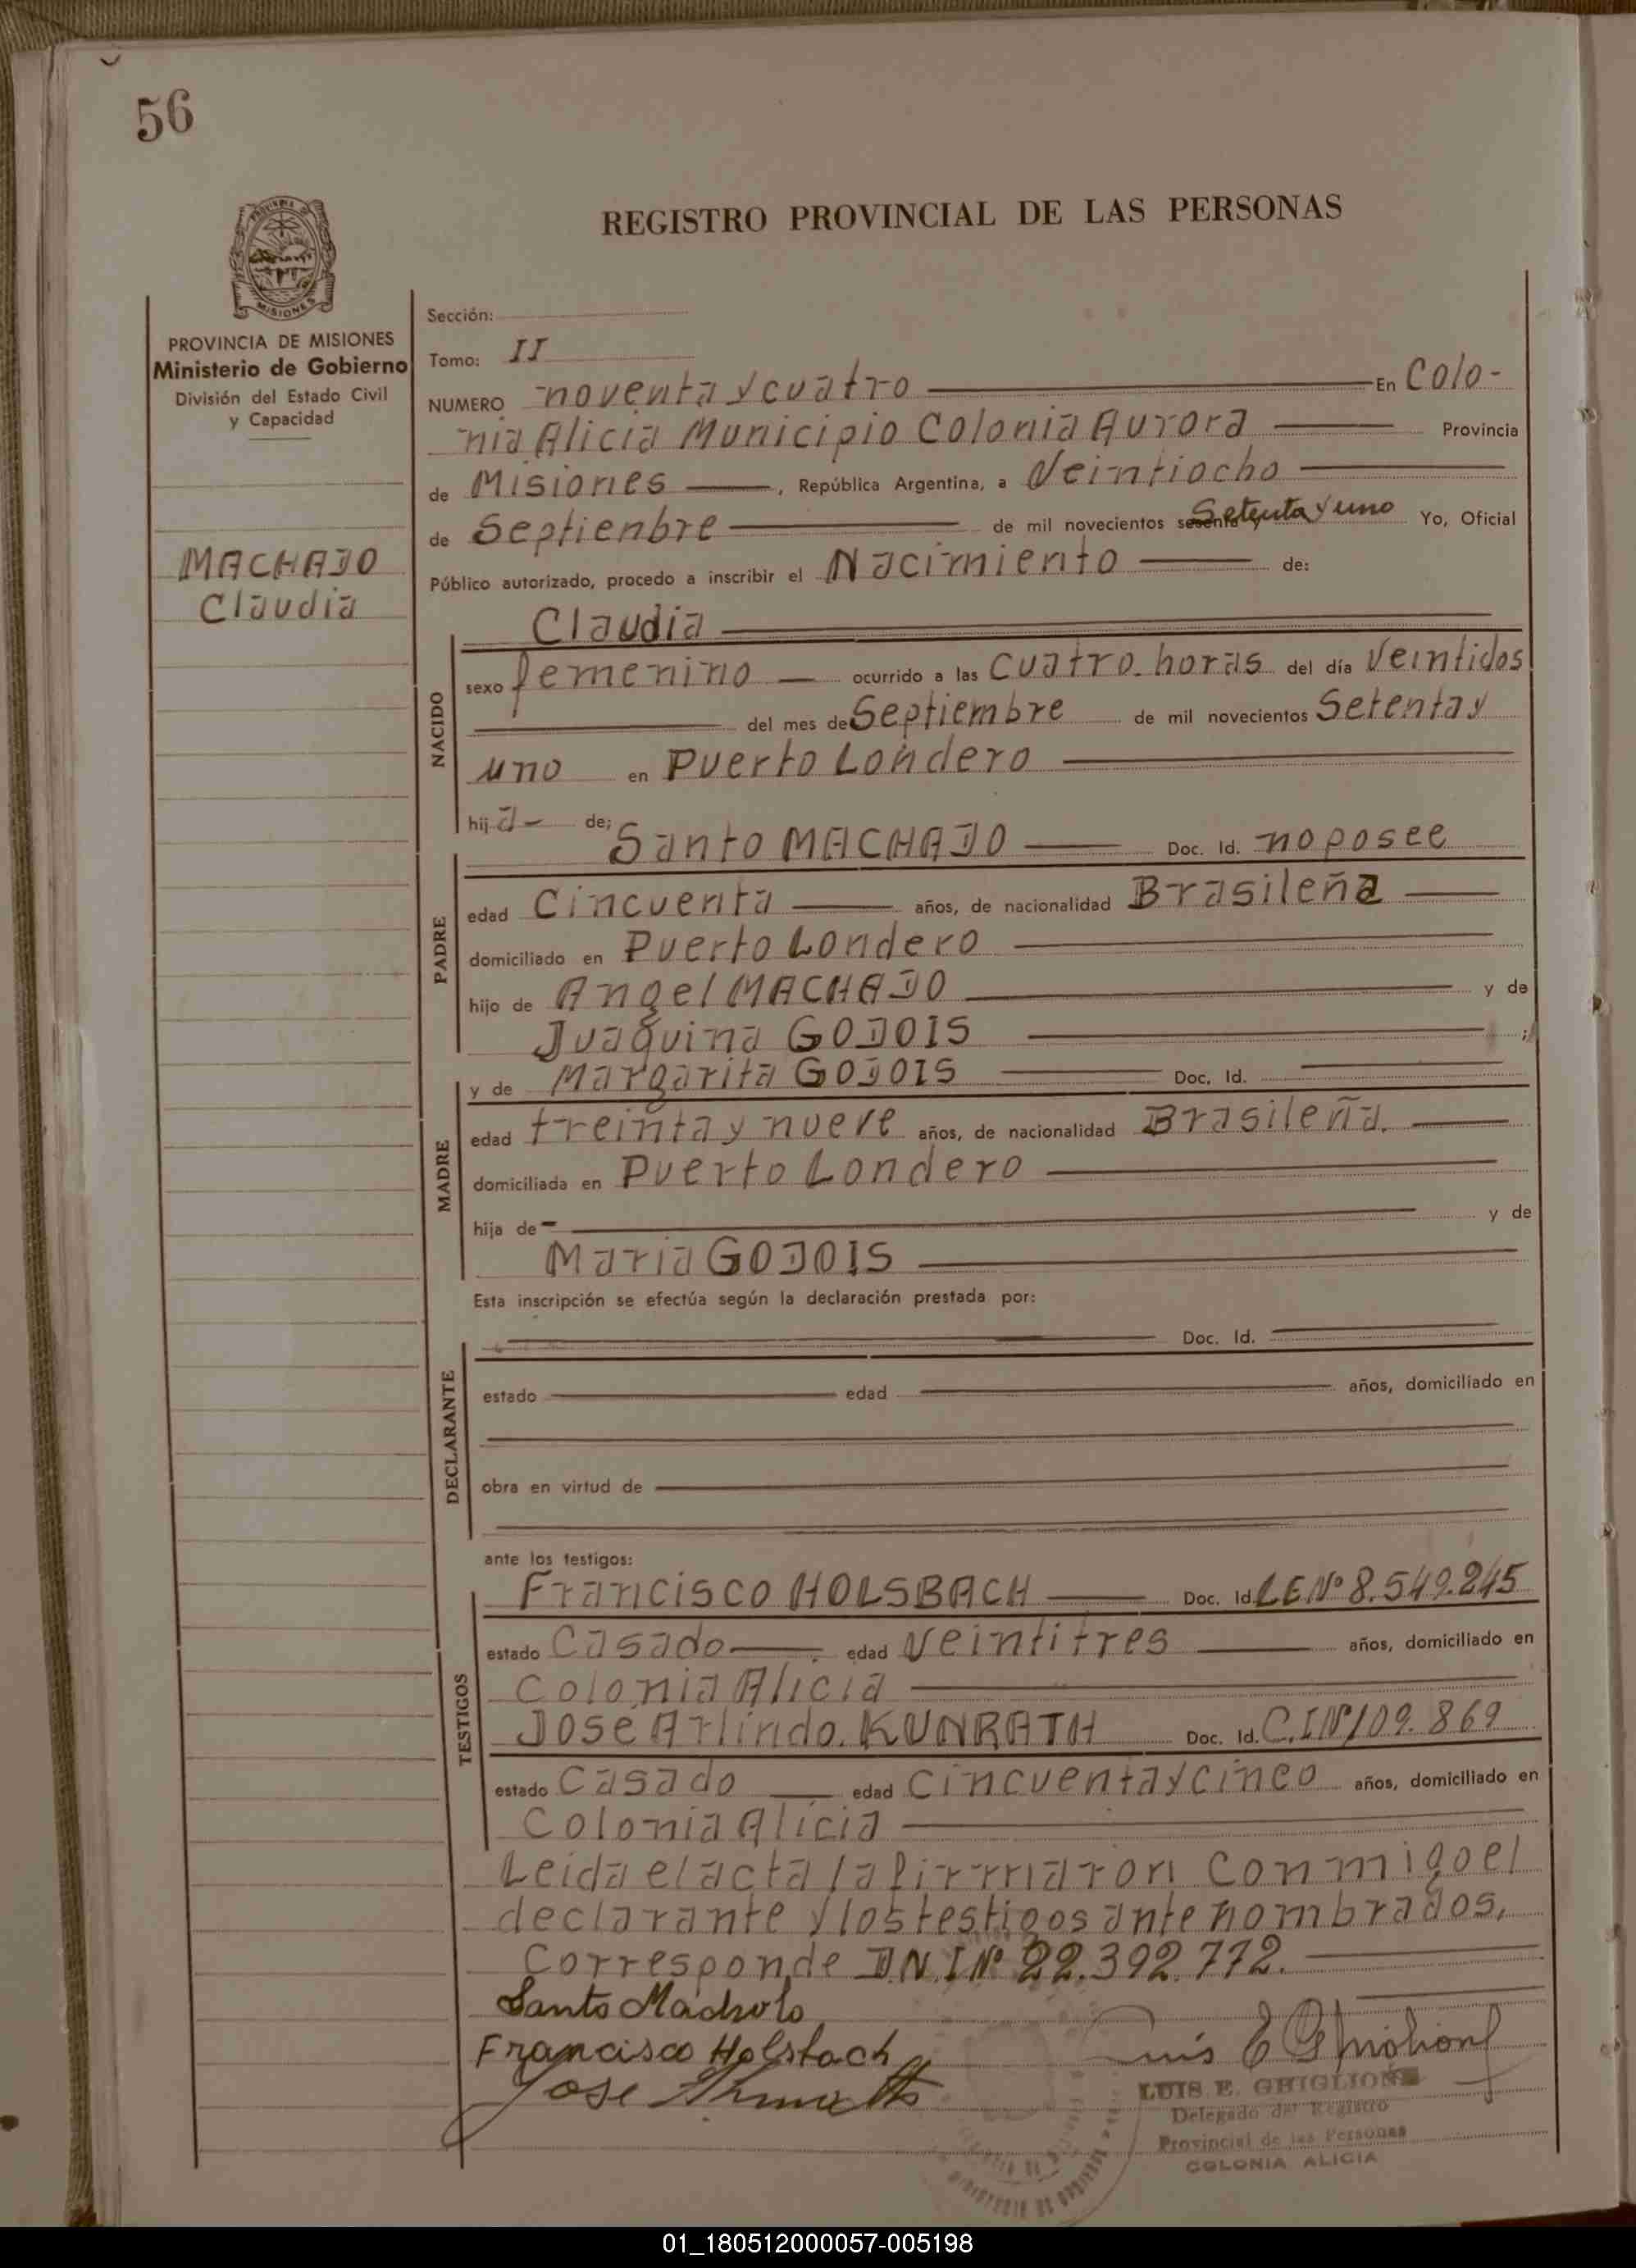 56
REGISTRO PROVINCIAL DE LAS PERSONAS
PROVINCIA DE MISIONES
Ministerio de Gobierno
División del Estado Civil
y Capacidad
MACHADO
Claudia
Sección:
Tomo: II
NUMERO noventa y cuatro En Colo-
nia Alicia Municipio Colonia Aurora Provincia
de Misiones, República Argentina, a Veintiocho
de Septienbre de mil novecientos sesenta y Setenta y uno Yo, Oficial
Público autorizado, procedo a inscribir el Nacimiento de:
Claudia
NACIDO
sexo femenino ocurrido a las cuatro horas del día Veintidos
del mes de Septiembre de mil novecientos Setenta y
uno en Puerto Londero
hija de;
Santo MACHADO Doc. Id. no posee
PADRE
edad Cincuenta años, de nacionalidad Brasileña
domiciliado en Puerto Londero
hijo de Angel MACHADO y de
Juaquina GODOIS ;
y de Margarita GODOIS Doc. Id.
MADRE
edad treinta y nueve años, de nacionalidad Brasileña.
domiciliada en Puerto Londero
hija de y de
Maria GODOIS
Esta inscripción se efectúa según la declaración prestada por:
Doc. Id.
DECLARANTE
estado edad años, domiciliado en
obra en virtud de
ante los testigos:
Francisco HOLSBACH Doc. Id. L E Nº 8.549.245
TESTIGOS
estado Casado edad Veintitres años, domiciliado en
Colonia Alicia
José Arlindo. KUNRATH Doc. Id. C.I Nº 109.869
estado Casado edad Cincuenta y cinco años, domiciliado en
Colonia Alicia
Leida el acta la firmaron conmigo el
declarante y los testigos ante nombrados,
Corresponde D.N.I Nº 22.392.772.
Santo Macholo
Francisco Holsbach
Jose
Luis E Ghiglione
LUIS E. GHIGLIONE
Delegado del Registro
Provincial de las Personas
COLONIA ALICIA
01_180512000057-005198